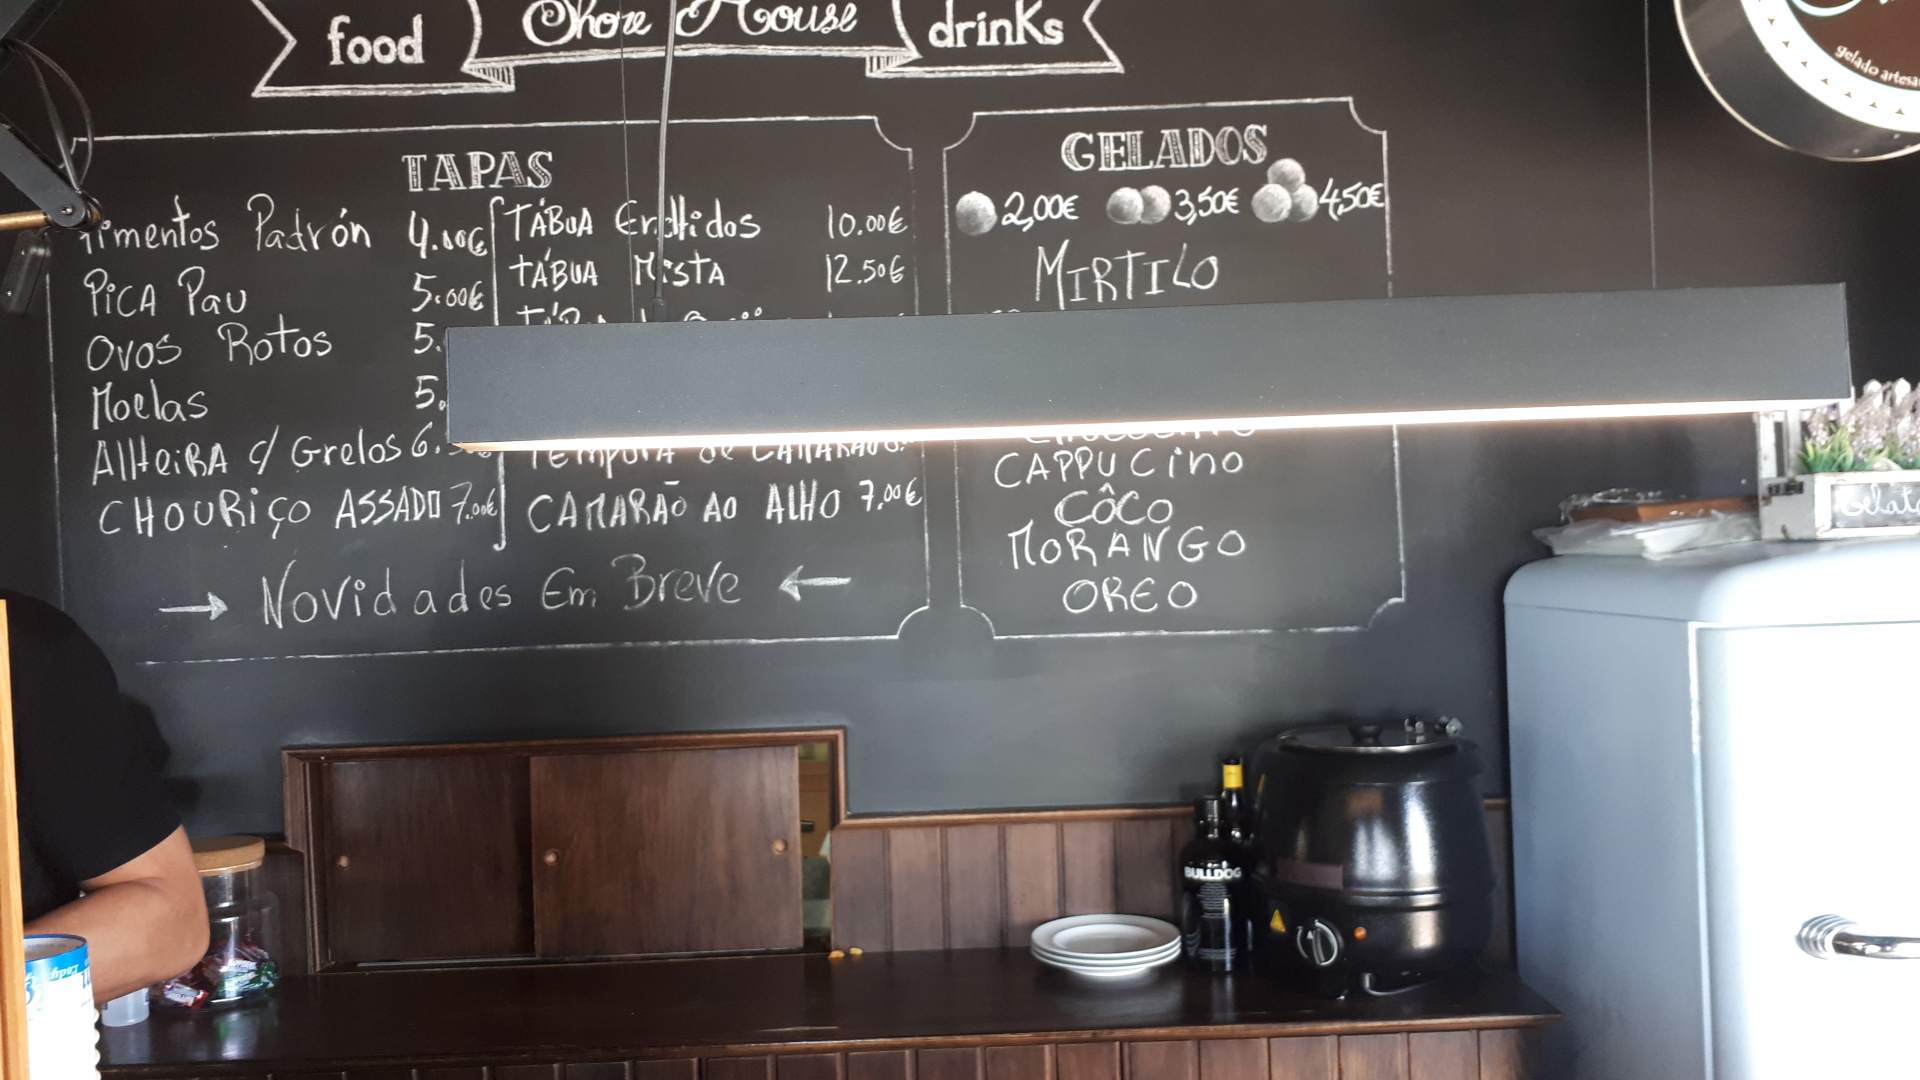 food
Shore House
drinks
TAPAS
Pimentos Padrón 4.00€
Pica Pau 5.00€
Ovos Rotos 5.
Moelas 5.
Alheira c/ Grelos 6.
CHOURiÇO ASSADO 7.00€
TÁBUA Enchidos 10.00€
TÁBUA MISTA 12.50€
Tempura de CAMARÃO
CAMARÃO AO ALHO 7.00€
Novidades Em Breve
GELADOS
2,00€ 3,50€ 4,50€
MIRTILO
CAPPUCino
CÔCO
MORANGO
OREO
gelado
BULLDOG